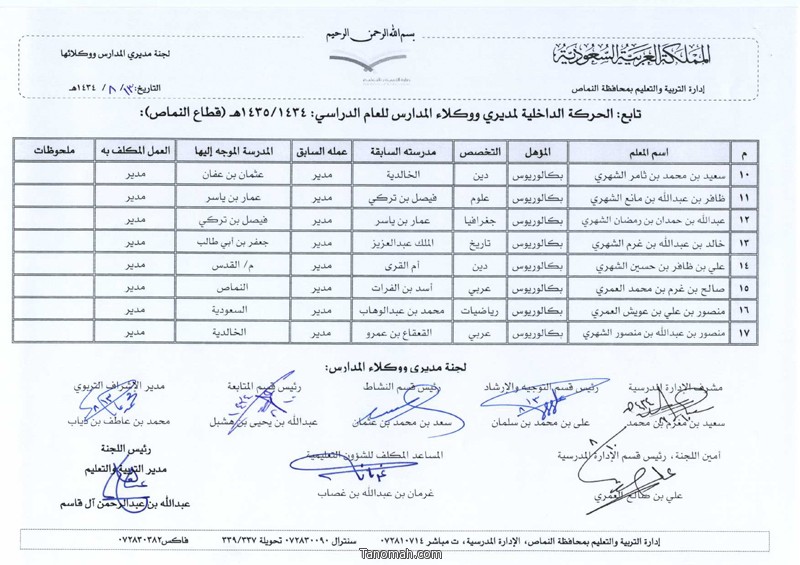 بسم الله الرحمن الرحيم
المملكة العربية السعودية
إدارة التربية والتعليم بمحافظة النماص
لجنة مديري المدارس ووكلائها
التاريخ: ١٣/ ٨ /١٤٣٤هـ
تابع: الحركة الداخلية لمديري ووكلاء المدارس للعام الدراسي: ١٤٣٥/١٤٣٤هـ (قطاع النماص):
م اسم المعلم المؤهل التخصص مدرسته السابقة عمله السابق المدرسة الموجه إليها العمل المكلف به ملحوظات
١٠ سعيد بن محمد بن ثامر الشهري بكالوريوس دين الخالدية مدير عثمان بن عفان مدير
١١ ظافر بن عبدالله بن مانع الشهري بكالوريوس علوم فيصل بن تركي مدير عمار بن ياسر مدير
١٢ عبدالله بن حمدان بن رمضان الشهري بكالوريوس جغرافيا عمار بن ياسر مدير فيصل بن تركي مدير
١٣ خالد بن عبدالله بن غرم الشهري بكالوريوس تاريخ الملك عبدالعزيز مدير جعفر بن أبي طالب مدير
١٤ علي بن ظافر بن حسين الشهري بكالوريوس دين أم القرى مدير م/ القدس مدير
١٥ صالح بن غرم بن محمد العمري بكالوريوس عربي أسد بن الفرات مدير النماص مدير
١٦ منصور بن علي بن عويش العمري بكالوريوس رياضيات محمد بن عبدالوهاب مدير السعودية مدير
١٧ منصور بن عبدالله بن منصور الشهري بكالوريوس عربي القعقاع بن عمرو مدير الخالدية مدير
لجنة مديري ووكلاء المدارس:
مشرف الإدارة المدرسية رئيس قسم التوجيه والإرشاد رئيس قسم النشاط رئيس قسم المتابعة مدير الإشراف التربوي
سعيد بن مغرم بن محمد علي بن محمد بن سلمان سعد بن محمد بن عثمان عبدالله بن يحيى بن هشبل محمد بن عاطف بن ذياب
أمين اللجنة، رئيس قسم الإدارة المدرسية المساعد المكلف للشؤون التعليمية رئيس اللجنة
مدير التربية والتعليم
علي بن صالح العمري غرمان بن عبدالله بن غصاب عبدالله بن عبدالرحمن آل قاسم
إدارة التربية والتعليم بمحافظة النماص، الإدارة المدرسية، ت مباشر ٠٧٢٨١٠٧١٤ سنترال ٠٧٢٨٣٠٠٩٠ تحويلة ٣٣٩/٣٣٧ فاكس٠٧٢٨٣٠٣٨٢
Tanomah.com